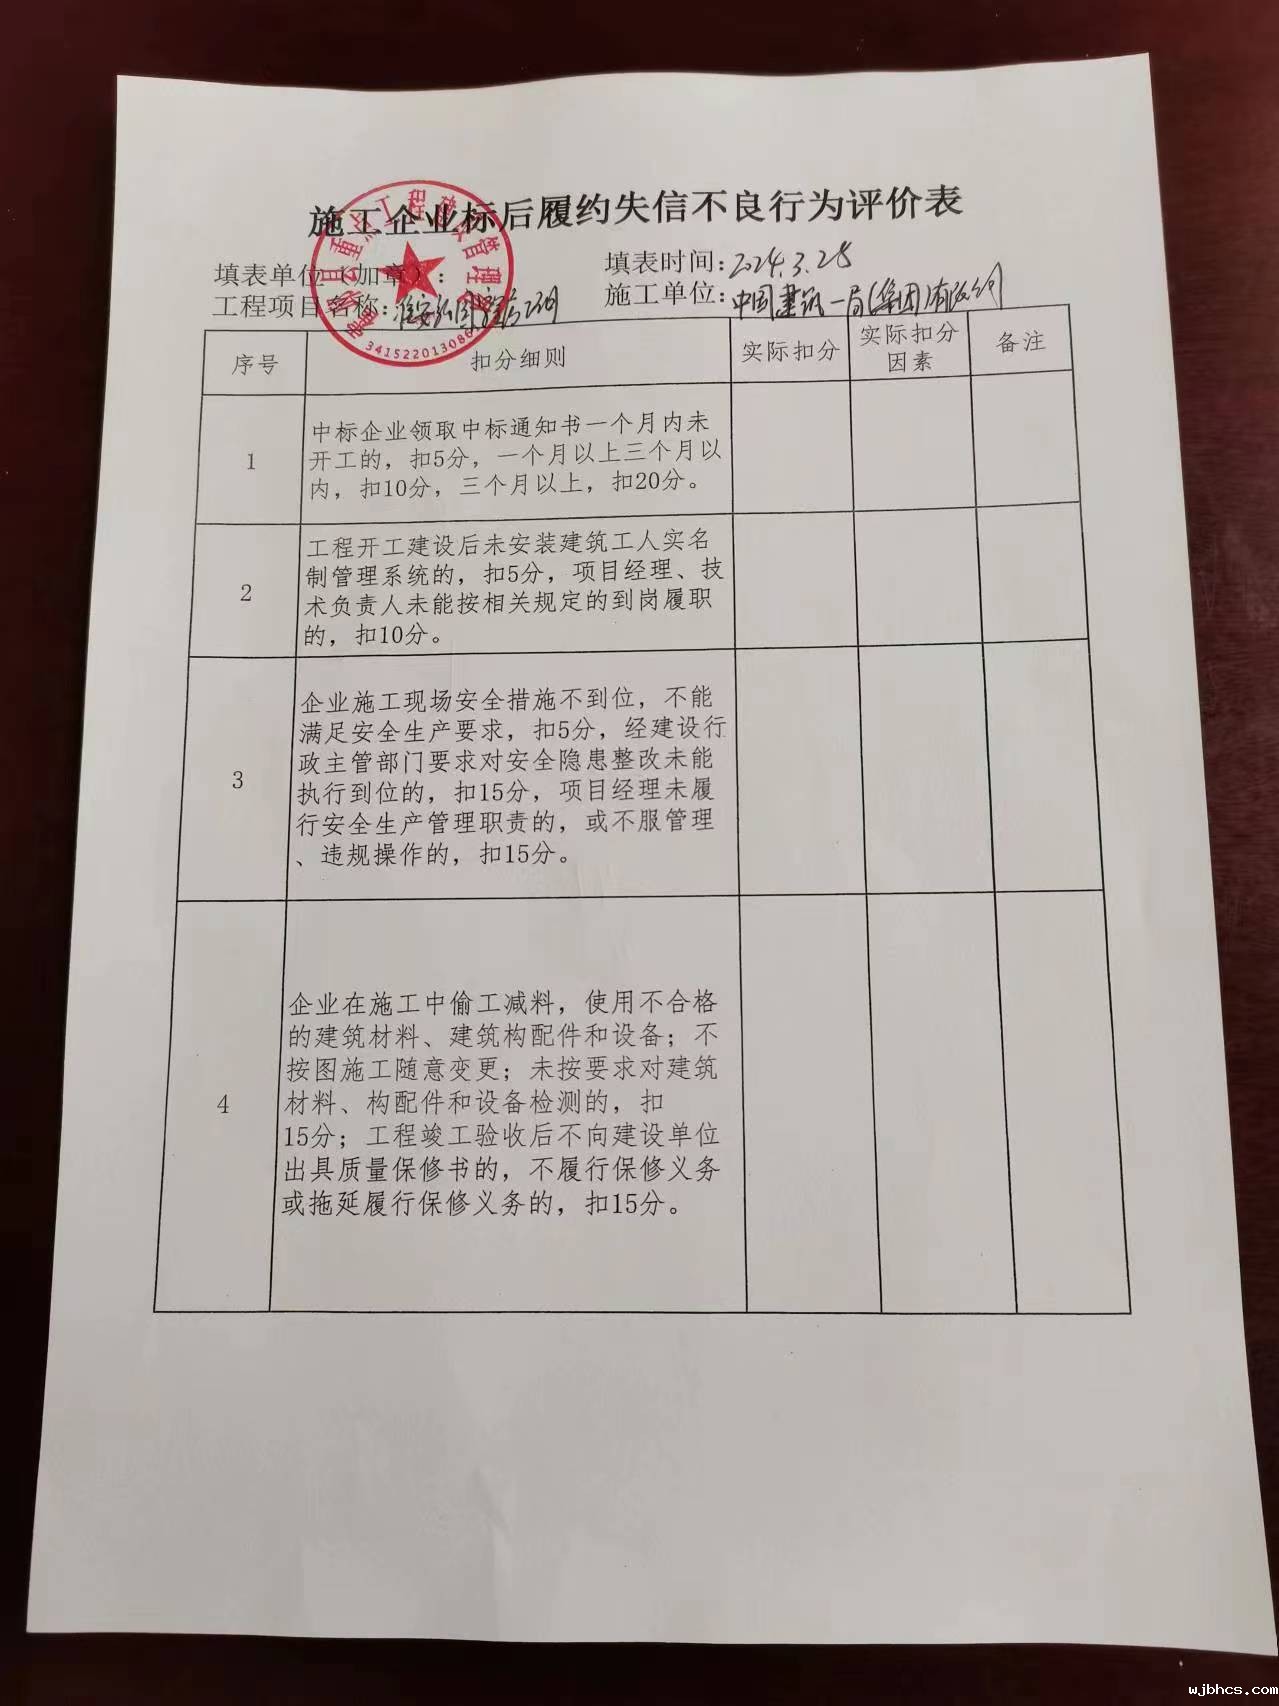 施工企业标后履约失信不良行为评价表
填表单位（加章）：
填表时间：2024.3.28
工程项目名称：
施工单位：中国建筑一局(集团)有限公司
重点工程建设管理
3415220130867
序号 扣分细则 实际扣分 实际扣分因素 备注
1
中标企业领取中标通知书一个月内未
开工的，扣5分，一个月以上三个月以
内，扣10分，三个月以上，扣20分。
2
工程开工建设后未安装建筑工人实名
制管理系统的，扣5分，项目经理、技
术负责人未能按相关规定的到岗履职
的，扣10分。
3
企业施工现场安全措施不到位，不能
满足安全生产要求，扣5分，经建设行
政主管部门要求对安全隐患整改未能
执行到位的，扣15分，项目经理未履
行安全生产管理职责的，或不服管理
、违规操作的，扣15分。
4
企业在施工中偷工减料，使用不合格
的建筑材料、建筑构配件和设备；不
按图施工随意变更；未按要求对建筑
材料、构配件和设备检测的，扣
15分；工程竣工验收后不向建设单位
出具质量保修书的，不履行保修义务
或拖延履行保修义务的，扣15分。
wjbhcs.com